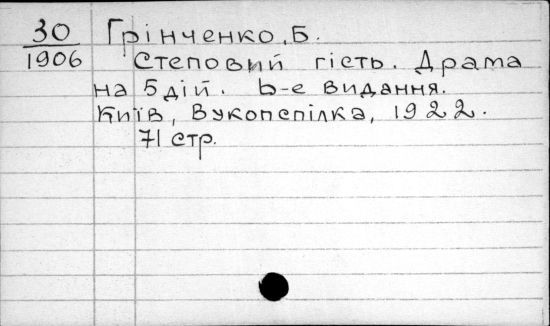 30
1906
Грінченко, Б.
Степовий гість. Драма
на 5 дій. Ь-е видання.
Київ, Вукопспілка, 1922.
71 стр.